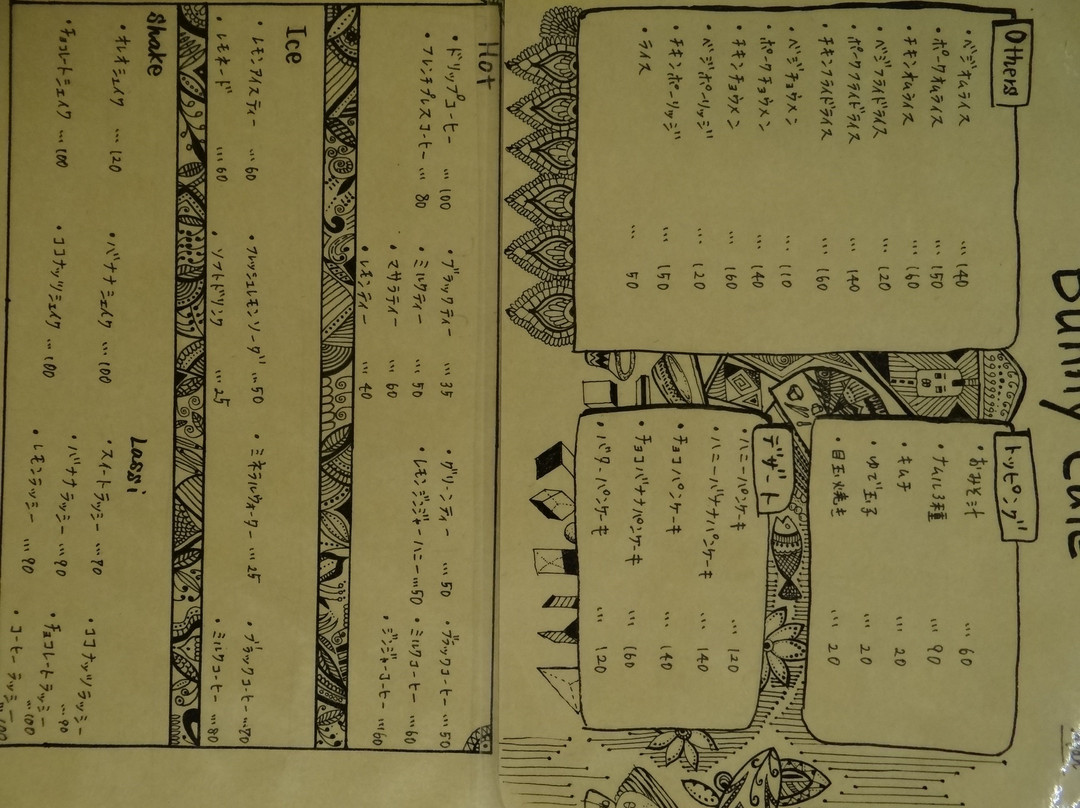 Bunny Cafe
Others
・ベジオムライス ... 140
・ポークオムライス ... 150
・チキンオムライス ... 160
・ベジフライドライス ... 120
・ポークフライドライス ... 140
・チキンフライドライス ... 160
・ベジチョウメン ... 110
・ポークチョウメン ... 140
・チキンチョウメン ... 160
・ベジポーリッジ ... 120
・チキンポーリッジ ... 150
・ライス ... 50
トッピング
・おみそ汁 ... 60
・ナムル3種 ... 90
・キムチ ... 20
・ゆで玉子 ... 20
・目玉焼き ... 20
デザート
・ハニーパンケーキ ... 120
・ハニーバナナパンケーキ ... 140
・チョコパンケーキ ... 140
・チョコバナナパンケーキ ... 160
・バターパンケーキ ... 120
Hot
・ドリップコーヒー ... 100
・フレンチプレスコーヒー ... 80
・ブラックティー ... 35
・ミルクティー ... 50
・マサラティー ... 60
・レモンティー ... 40
・グリーンティー ... 50
・レモンジンジャーハニー ... 50
・ブラックコーヒー ... 50
・ミルクコーヒー ... 60
・ジンジャーコーヒー ... 60
Ice
・レモンアイスティー ... 60
・レモネード ... 60
・フレッシュレモンソーダ ... 50
・ソフトドリンク ... 25
・ミネラルウォーター ... 25
・ブラックコーヒー ... 70
・ミルクコーヒー ... 80
Shake
・オレオシェイク ... 120
・チョコレートシェイク ... 100
・バナナシェイク ... 100
・ココナッツシェイク ... 100
Lassi
・スイートラッシー ... 70
・バナナラッシー ... 90
・レモンラッシー ... 90
・ココナッツラッシー ... 90
・チョコレートラッシー ... 100
・コーヒーラッシー ... 100